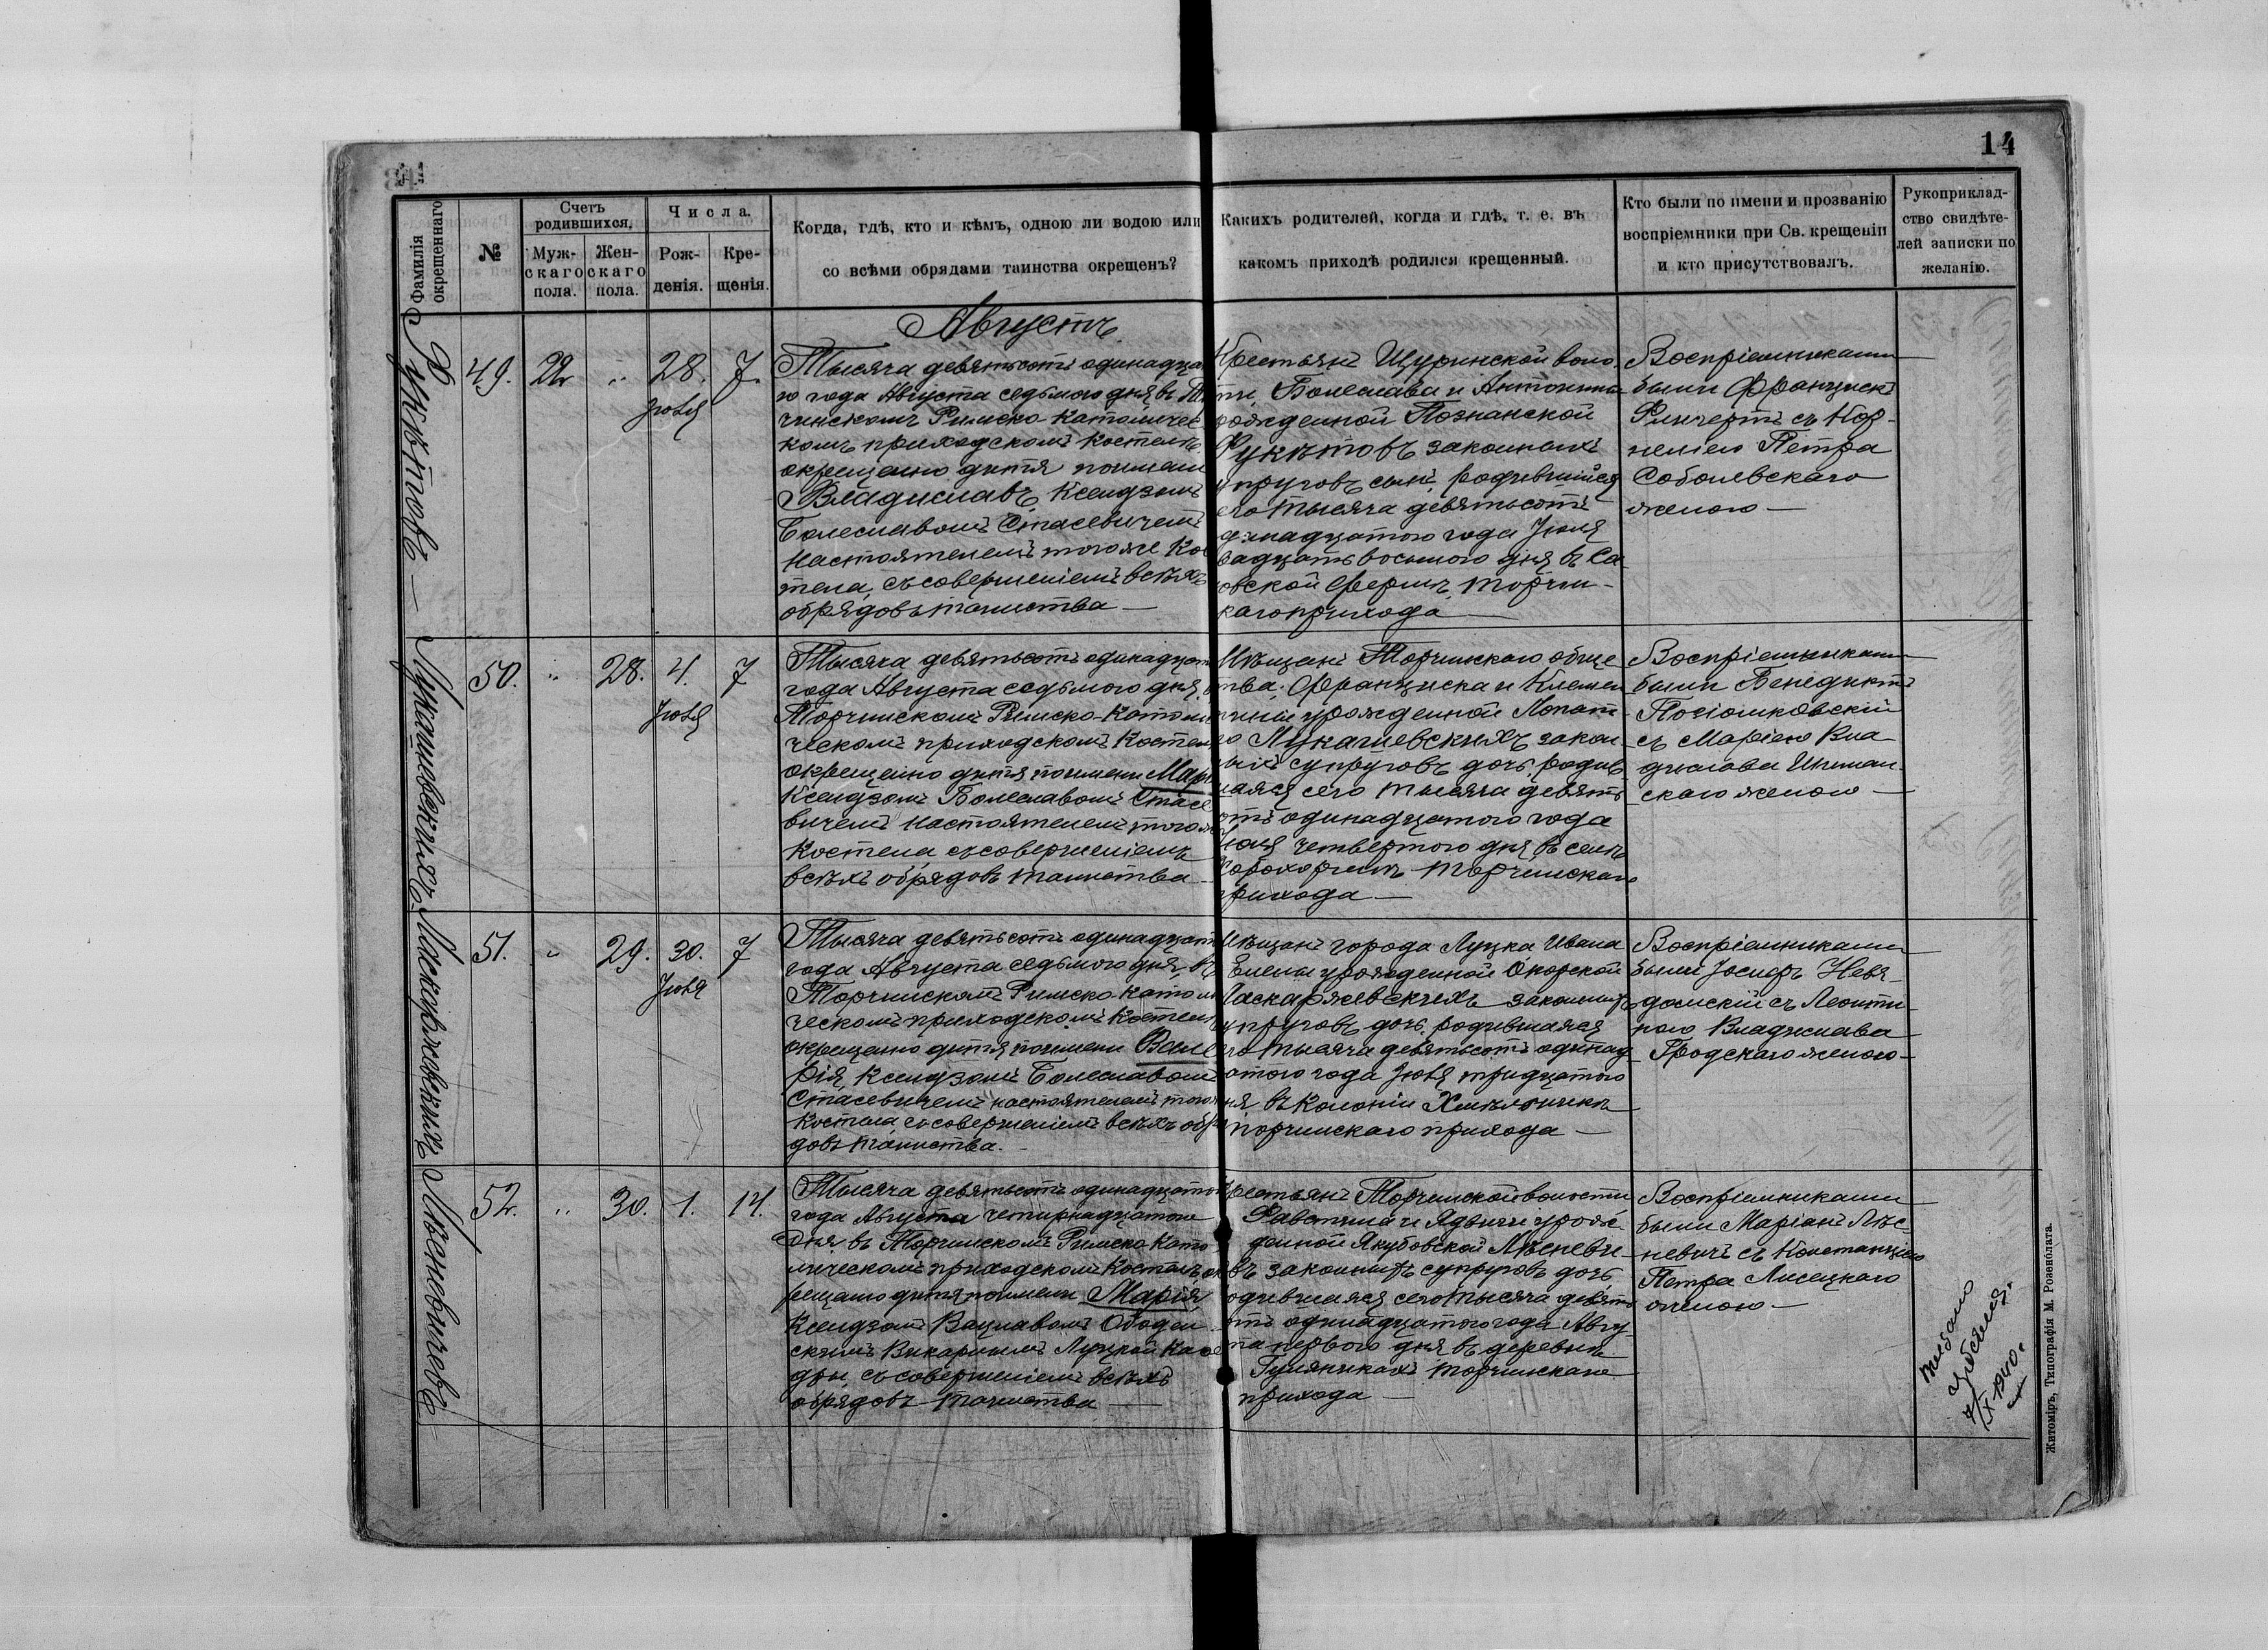 14
Фамилія окрещеннаго
№
Счетъ родившихся.
Муж-скаго пола.
Жен-скаго пола.
Числа.
Рож-денія.
Кре-щенія.
Когда, гдѣ, кто и кѣмъ, одною ли водою или
со всѣми обрядами таинства окрещенъ?
Какихъ родителей, когда и гдѣ, т. е. въ
какомъ приходѣ родился крещенный.
Кто были по имени и прозванію
воспріемники при Св. крещеніи
и кто присутствовалъ.
Рукоприклад-
ство свидѣте-
лей записки по
желанію.
Августъ
49. 22 „ 28. Юля 7.
Тысяча девятьсотъ одинадца
го года Августа седьмого дня въ Т
чинскомъ Римско-Католичес
комъ приходскомъ костелѣ,
окрещено дитя по имени
Владиславъ, Ксендзомъ
Болеславомъ Стасевичемъ
Настоятелемъ того же Кос
тела, съ совершеніемъ всѣхъ
обрядовъ таинства —
Крестьянъ Щуринской воло
ти, Болеслава и Антонины
рожденной Познанской
Фукѣтовъ законныхъ
упруговъ сынъ, родившійся
его тысяча девятьсотъ
динадцатого года Іюля
вадцать восьмого дня въ Са
овской фермѣ, Торчин-
каго прихода
Воспріемниками
были Францискъ
Рихертъ съ Кор-
неліею Петра
Соболевскаго
женою —
50. „ 28. 4. Юля 7
Тысяча девятьсотъ одинадцат
года Августа седьмого дня,
Торчинскомъ Римско-Католи
ческомъ приходскомъ Костел
окрещено дитя по имени Марі
Ксендзомъ Болеславомъ Стасе
вичемъ Настоятелемъ того ж
Костела съ совершеніемъ
всѣхъ обрядовъ таинства
Мѣщанъ Торчинскаго обще
тва, Франциска и Клемен
тины урожденной Лопат
го Лукашевскихъ закон
ыхъ супруговъ дочь, родив
шаяся сего тысяча девять
отъ одинадцатого года
Юля четвертого дня, въ селѣ
Торчинскаго
прихода —
Воспріемниками
были Бенедиктъ
съ Маріею Вла
дислава Шиман
скаго женою —
51. „ 29. 30. Юля 7
Тысяча девятьсотъ одинадцат
года Августа седьмого дня, въ
Торчинскомъ Римско-Католи
ческомъ приходскомъ Костел
окрещено дитя по имени Вале
рія, Ксендзомъ Болеславомъ
Стасевичемъ настоятелемъ того
Костела, съ совершеніемъ всѣхъ обр
довъ таинства.
Мѣщанъ города Луцка Ивана
Елены урожденной
Ласкаржевскихъ законныхъ
упруговъ дочь, родившаяся
его тысяча девятьсотъ одинад
атого года Юля тридцатого
ня въ Колоніи
Торчинскаго прихода —
Воспріемниками
были Іосифъ Невя-
домскій съ Леонти
ною Владислава
Гродскаго женою —
52. „ 30. 1. 14.
Тысяча девятьсотъ одинадцатого
года Августа четырнадцатого
дня въ Торчинскомъ Римско-Като
лическомъ приходскомъ Костелѣ, ок
рещено дитя по имени Марія,
Ксендзомъ Вацлавомъ Ободзин
скимъ Викарнымъ Луцкой Каѳе
дры, съ совершеніемъ всѣхъ
обрядовъ таинства —
рестьянъ Торчинской волости
Фавстина и Ядвиги урож-
денной Якубовской Лѣсневи
въ законныхъ супруговъ дочь
одившаяся сего тысяча девять
отъ одинадцатого года Авгу
та первого дня, въ деревни
Гуляникахъ Торчинскаго
прихода —
Воспріемниками
были Маріанъ Лѣс-
невичъ съ Констанціею
Петра Лисецкаго
женою —
IX 1940.
Фукѣтовъ —
Лукашевскихъ
Ласкаржевскихъ
Лѣсневичевъ
Житоміръ, Типографія М. Розенблата.